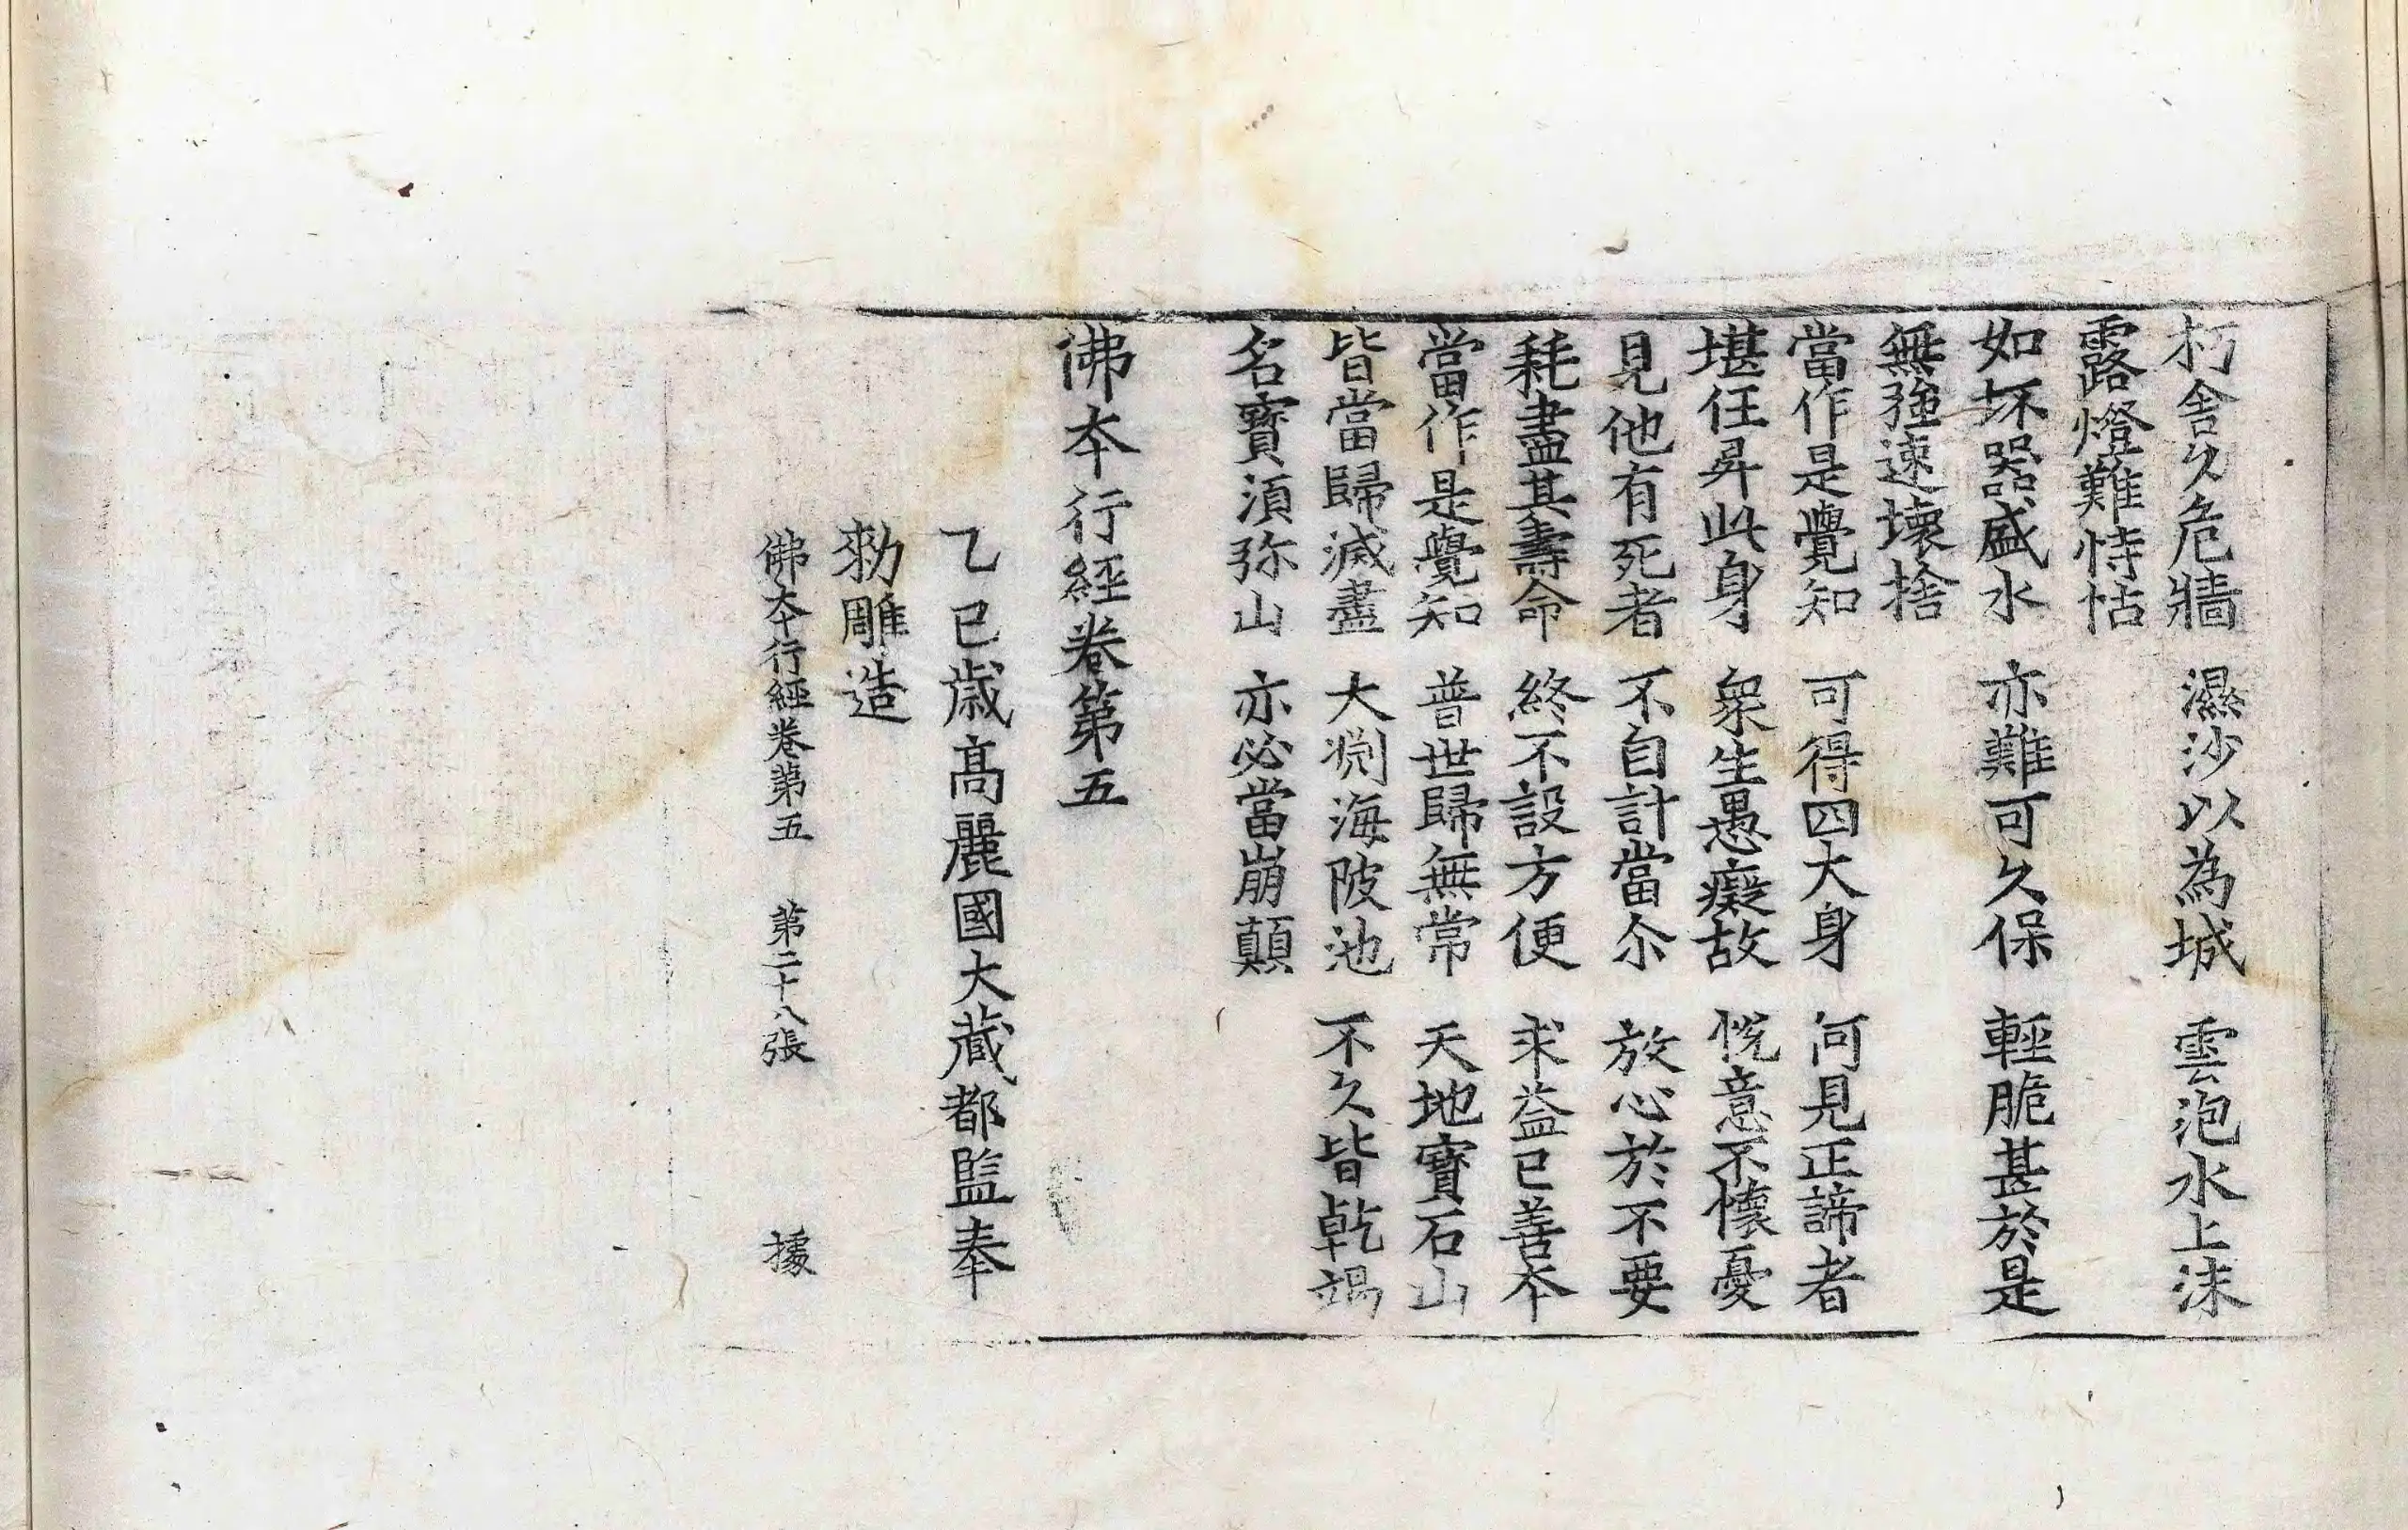 朽舍久危牆　濕沙以為城　雲泡水上沫
露燈難恃怙
如坏器盛水　亦難可久保　輕脆甚於是
無強速壞捨
當作是覺知　可得四大身　何見正諦者
堪任昇此身　衆生愚癡故　恱意不懷憂
見他有死者　不自計當尒　放心於不要
耗盡其壽命　終不設方便　求益已善夲
當作是覺知　普世歸無常　天地寶石山
皆當歸滅盡　大渕海陂池　不久皆乾竭
名寶湏弥山　亦必當崩顛
佛夲行經卷第五
乙巳歳髙麗國大藏都監奉
勑雕造
佛夲行經卷第五　第二十八張　據